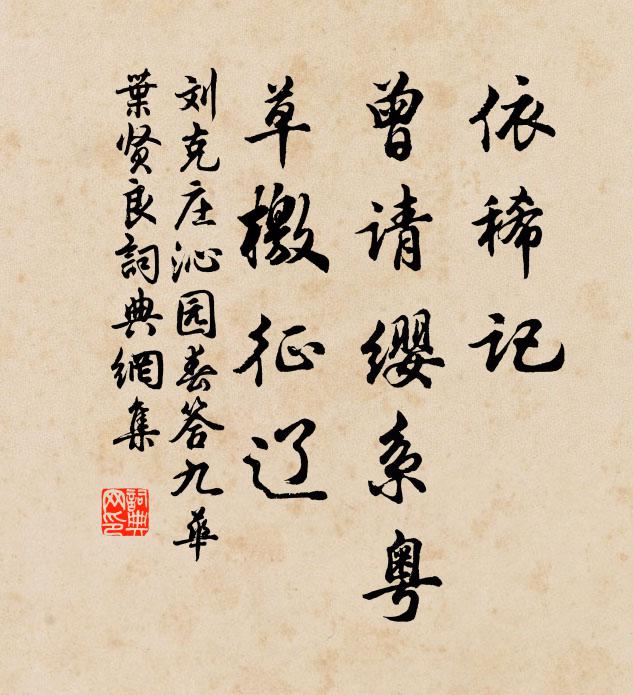 依稀记
曾请缨系粤
草檄征辽
刘克庄沁园春答九华
葉贤良詞典網集
詞典网印